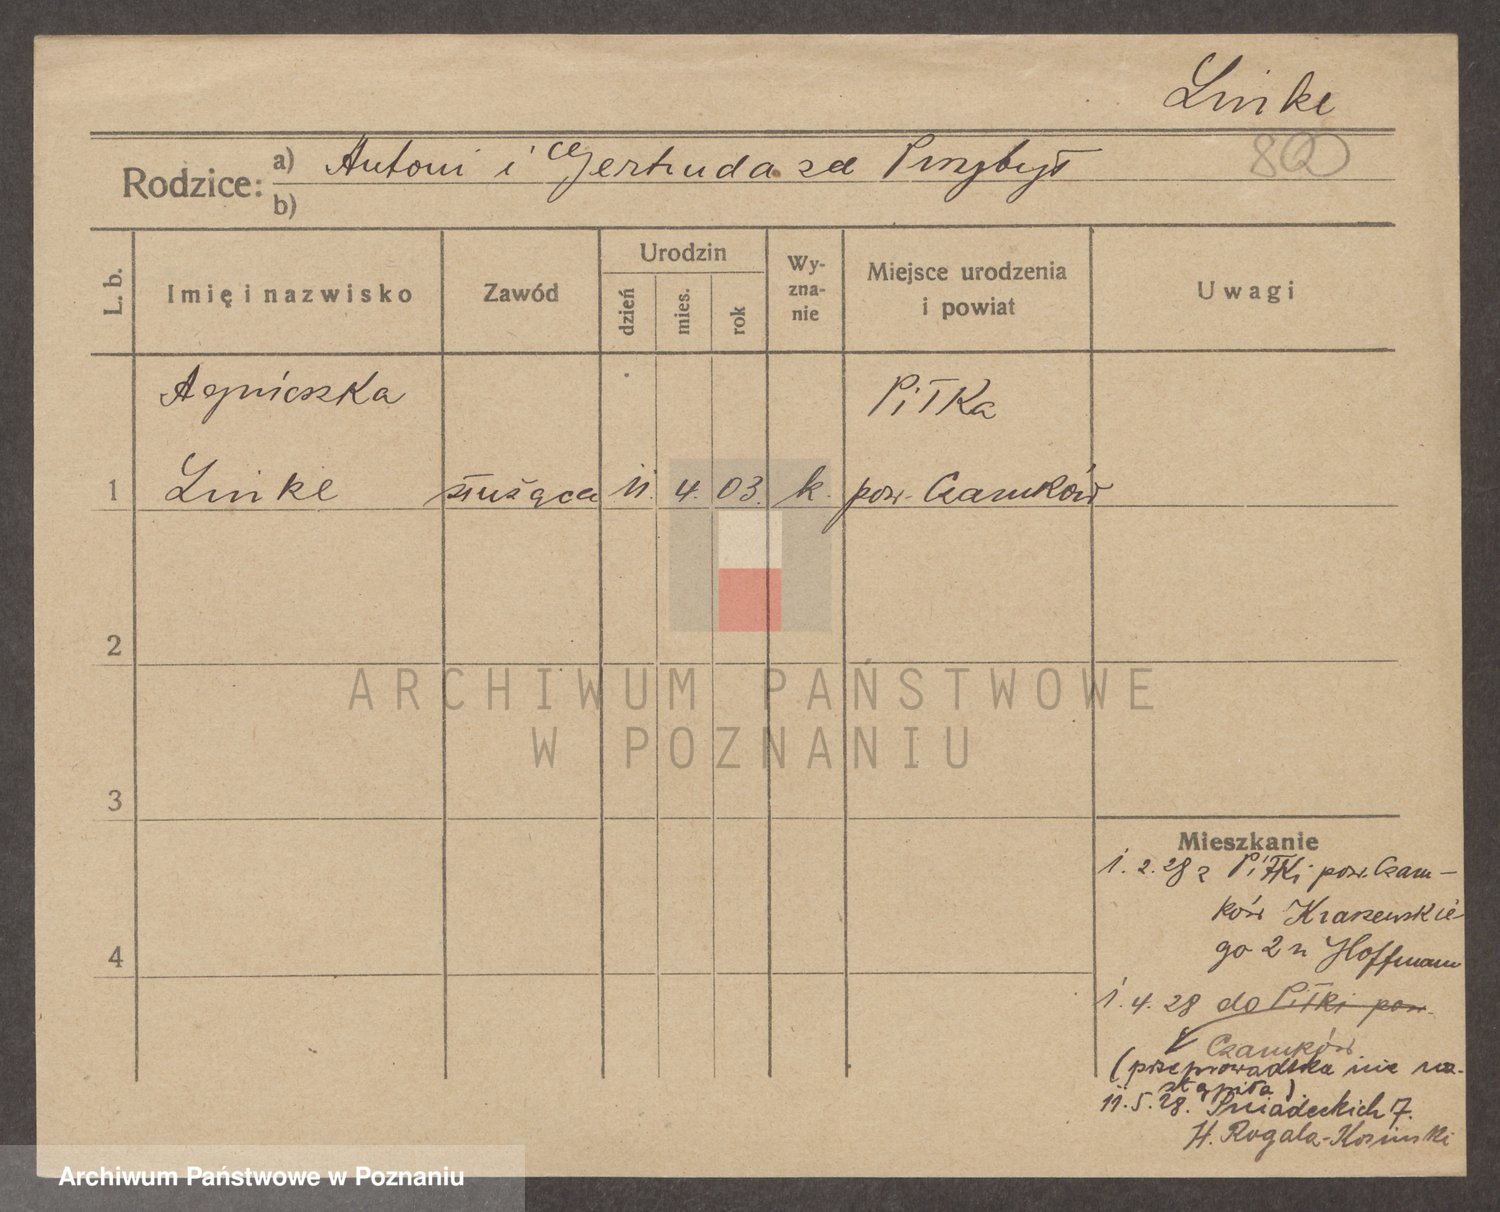 Linke
Rodzice: a) Antoni i Gertruda zd Przybył
b)
L. b.
Imię i nazwisko
Zawód
Urodzin
dzień
mies.
rok
Wy-
zna-
nie
Miejsce urodzenia
i powiat
Uwagi
Agnieszka
Piłka
1 Linke służąca 11. 4. 03. k. pow. Czarnków
2
3
4
Mieszkanie
1. 2. 28 z Piłki pow. Czarn-
ków Kraszewskie-
go 2 n Hoffmann
1. 4. 28 do Piłki pow.
Czarnków
(przeprowadzka nie na-
stąpiła)
11. 5. 28. Śniadeckich 7.
H. Rogala-Kosinski
ARCHIWUM PAŃSTWOWE
W POZNANIU
Archiwum Państwowe w Poznaniu